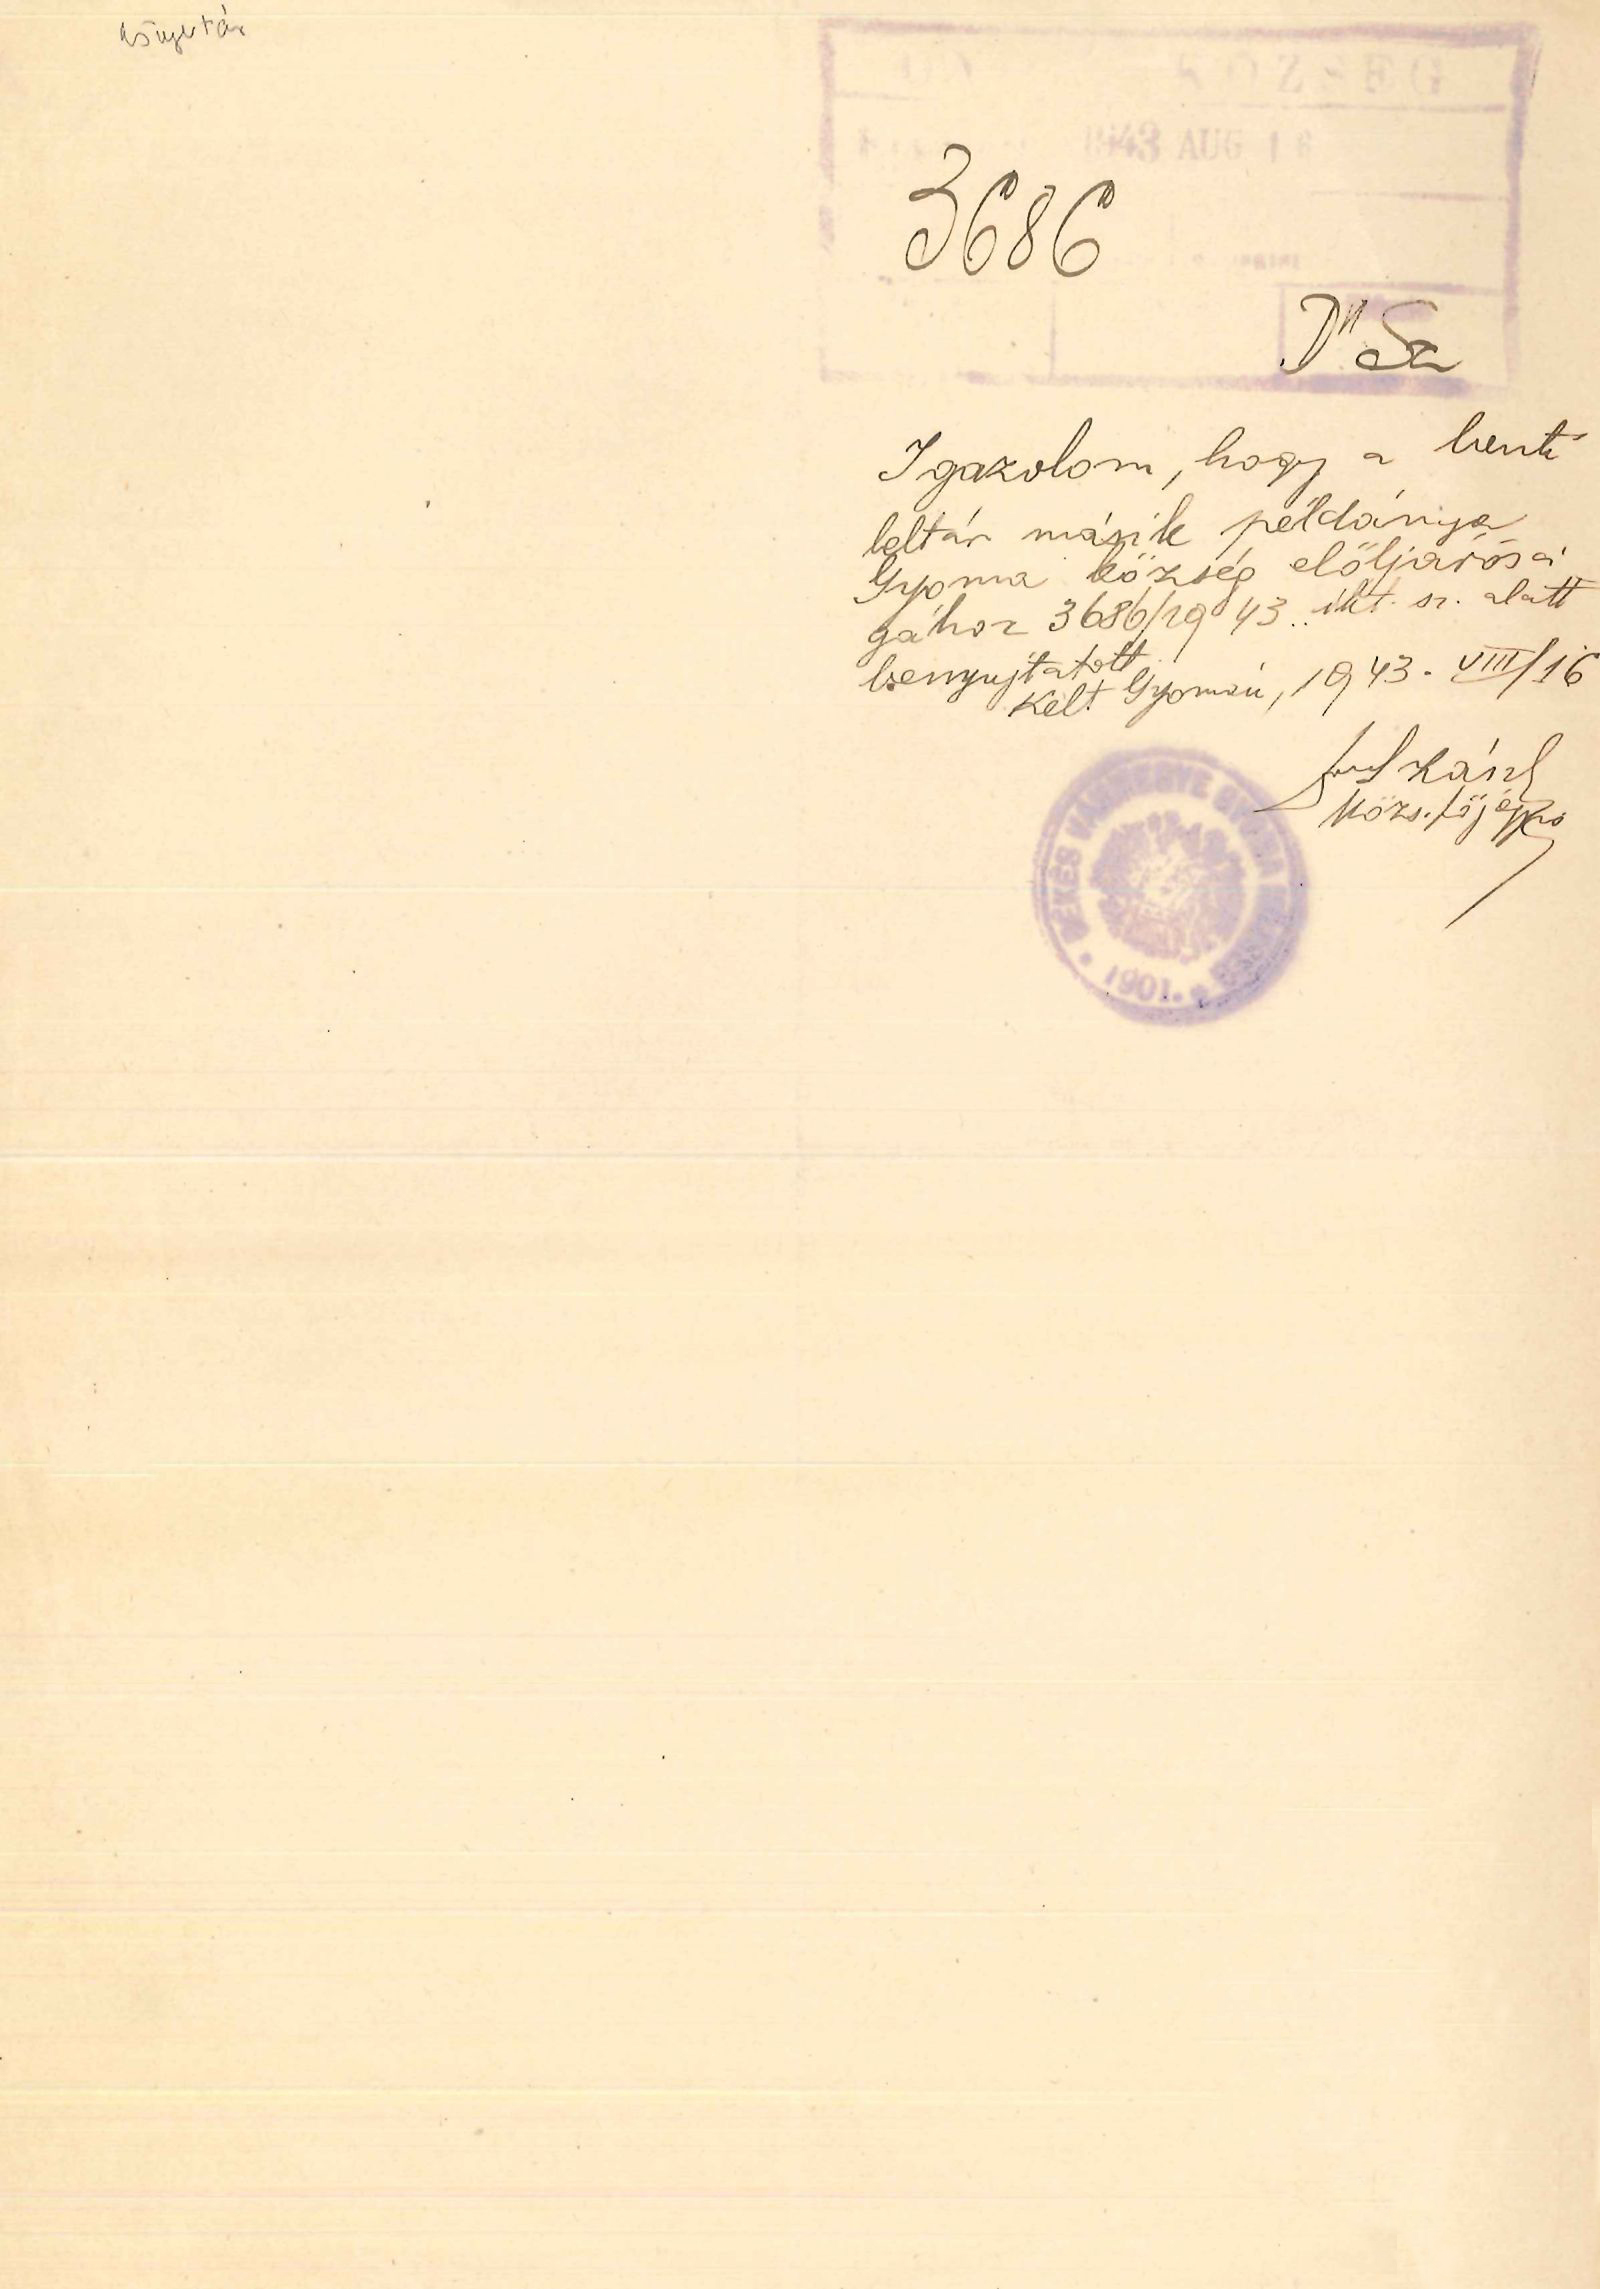 KÖZSEG
1943 AUG 16
3686
Dr Sz
Igazolom, hogy a benti
leltár másik példánya
Gyoma község előljárósá
gához 3686/1943. ikt. sz. alatt
benyujtatott
Kelt Gyomán, 1943. VIII/16
közs. főjegyző
BÉKÉS VÁRMEGYE GYOMA KÖZSÉG
1901.